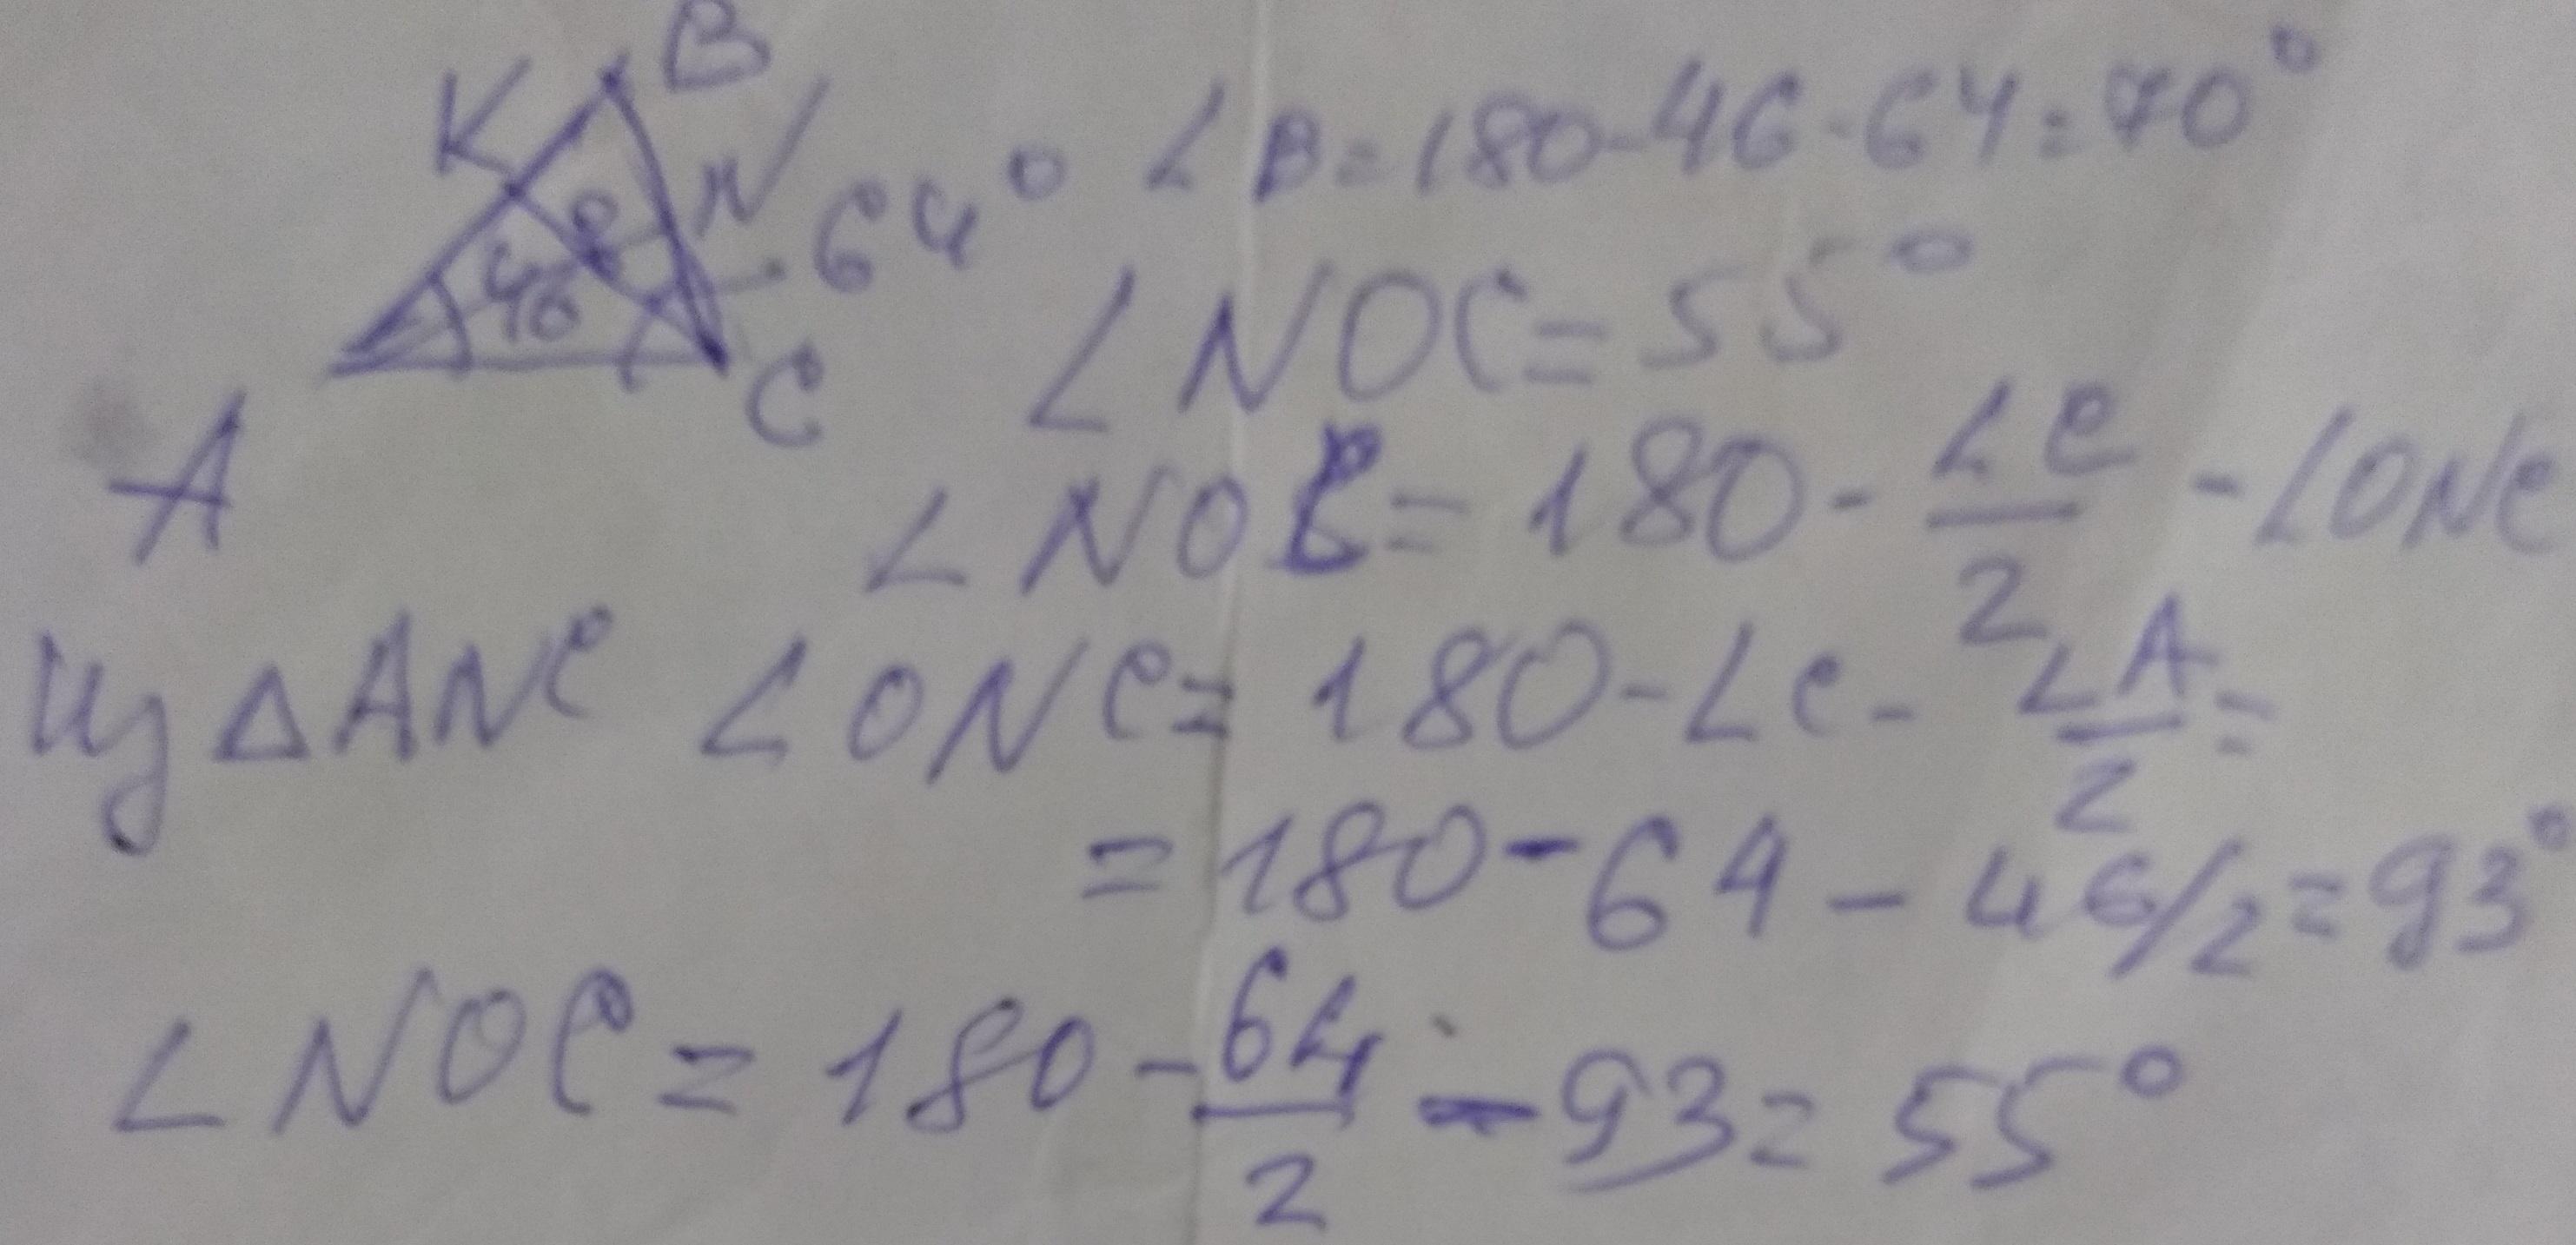 B
K
N
O
46
64°
A
C
∠B=180-46-64=70°
∠NOC=55°
∠NOC=180-∠C/2-∠ONC
Из △ANC ∠ONC=180-∠C-∠A/2=
=180-64-46/2=93°
∠NOC=180-64/2-93=55°